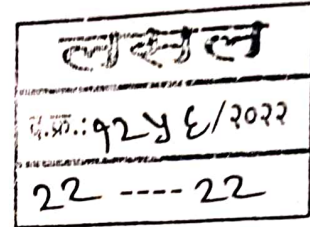 लसल
द.क्र.: १२५६/२०२२
22 ---- 22